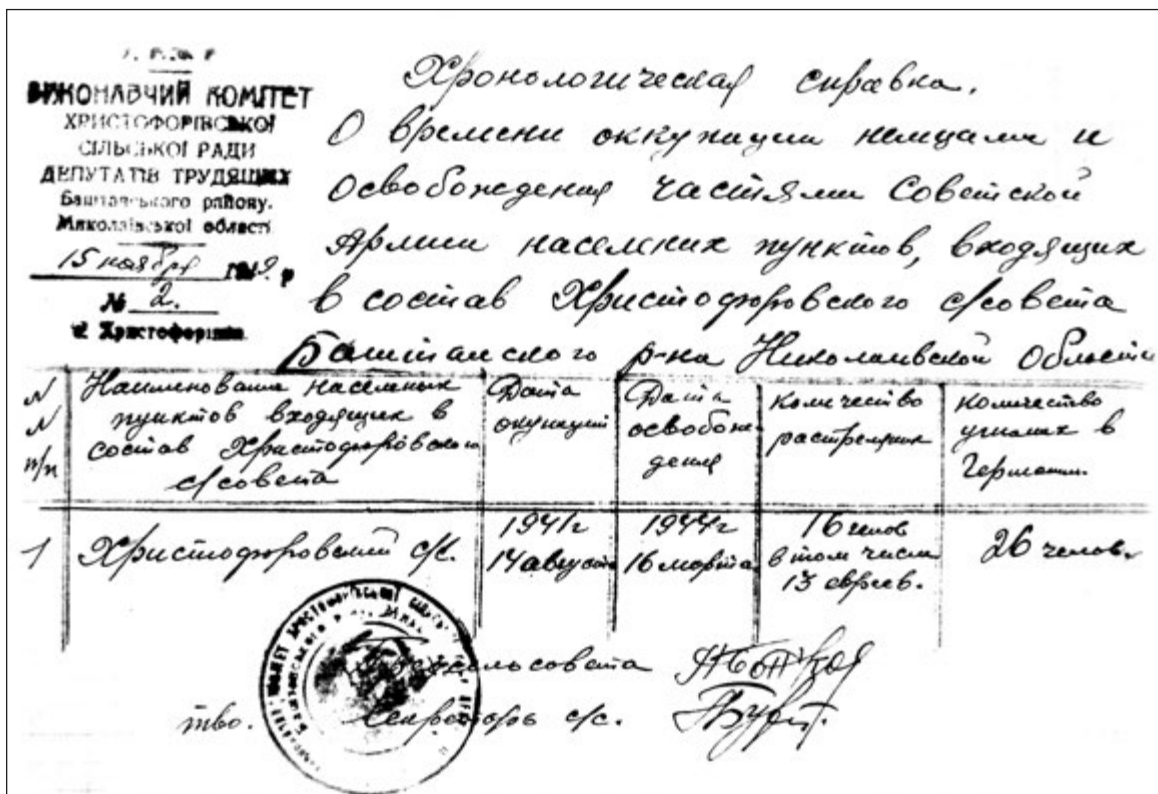 ВИКОНАВЧИЙ КОМІТЕТ
ХРИСТОФОРІВСЬКОЇ
СІЛЬСЬКОЇ РАДИ
ДЕПУТАТІВ ТРУДЯЩИХ
Баштанського району,
Миколаївської області
15 ноября р
№ 2.
Христофорівка
Хронологическая справка.
О времени оккупации немцами и
освобождения частями Советской
Армии населених пунктов, входящих
в состав Христофоровского с/совета
Баштанского р-на Николаевской области
N N п/п
Наименование населених
пунктов входящих в
состав Христофоровского
с/совета
Дата
окупации
Дата
освобож-
дения
количество
растреляних
количество
угнаних в
Германию.
1 Христофоровский с/с.
1941г
14 августа
1944г
16 марта
16 челов
в том числе
13 евреев.
26 челов.
сельсовета
Секретарь с/с.